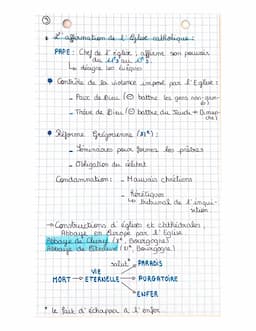 ③
• L'affirmation de l'Église catholique :
PAPE : Chef de l'église ; affirme son pouvoir
du
↳ désigne les évêques
• Contrôle de la violence imposé par l'Église :
- Paix de Dieu (⊖ battre les gens non-guer-
- Trève de Dieu (⊖ battre du Jeudi → Diman-
che)
• Réforme Grégorienne (XIᵉ) :
- Séminaires pour former les prêtres
- Obligation du célibat
Condamnation : - Mauvais chrétiens
- Hérétiques
↳ tribunal de l'inqui-
sition
→ Constructions d'églises et cathédrales,
Abbaye en Europe par l'Église
Abbaye de Cluny (Xᵉ, Bourgogne)
Abbaye de (Bourgogne)
salut PARADIS
VIE
MORT → ETERNELLE → PURGATOIRE
ENFER
* le fait d'échapper à l'enfer